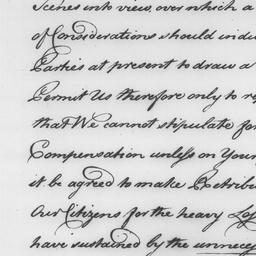 Scenes into view, over which a
of Considerations should induce
Parties at present to draw a
Permit Us therefore only to re
that We cannot stipulate for
Compensation unless on Your
it be agreed to make Retribu
Our Citizens for the heavy Los
have sustained by the unneces